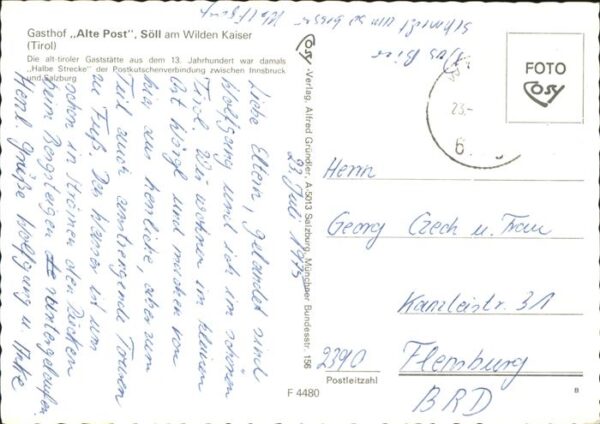 Gasthof „Alte Post", Söll am Wilden Kaiser
(Tirol)
Die alt-tiroler Gaststätte aus dem 13. Jahrhundert war damals
„Halbe Strecke" der Postkutschenverbindung zwischen Innsbruck
und Salzburg
23. Juli 1975
Liebe Eltern, gelandet sind
Wolfgang und ich im schönen
Tirol. Wir wohnen im kleinen
Ort Wörgl und machen von
hier aus herrliche, aber zum
Teil auch anstrengende Touren
zu Fuß. Das Wasser ist uns
schon in Strömen den Rücken
beim Bergsteigen runtergelaufen.
Herzl. Grüße Wolfgang u. Heike
Das Bier
schmeckt um so besser Wolfgang
Cosy -Verlag, Alfred Gründler, A-5013 Salzburg, Münchner Bundesstr. 156
FOTO
Cosy
23.-
6
Herrn
Georg Czech u. Frau
Kanzleistr. 31
2390 Flensburg
Postleitzahl
BRD
F 4480
B